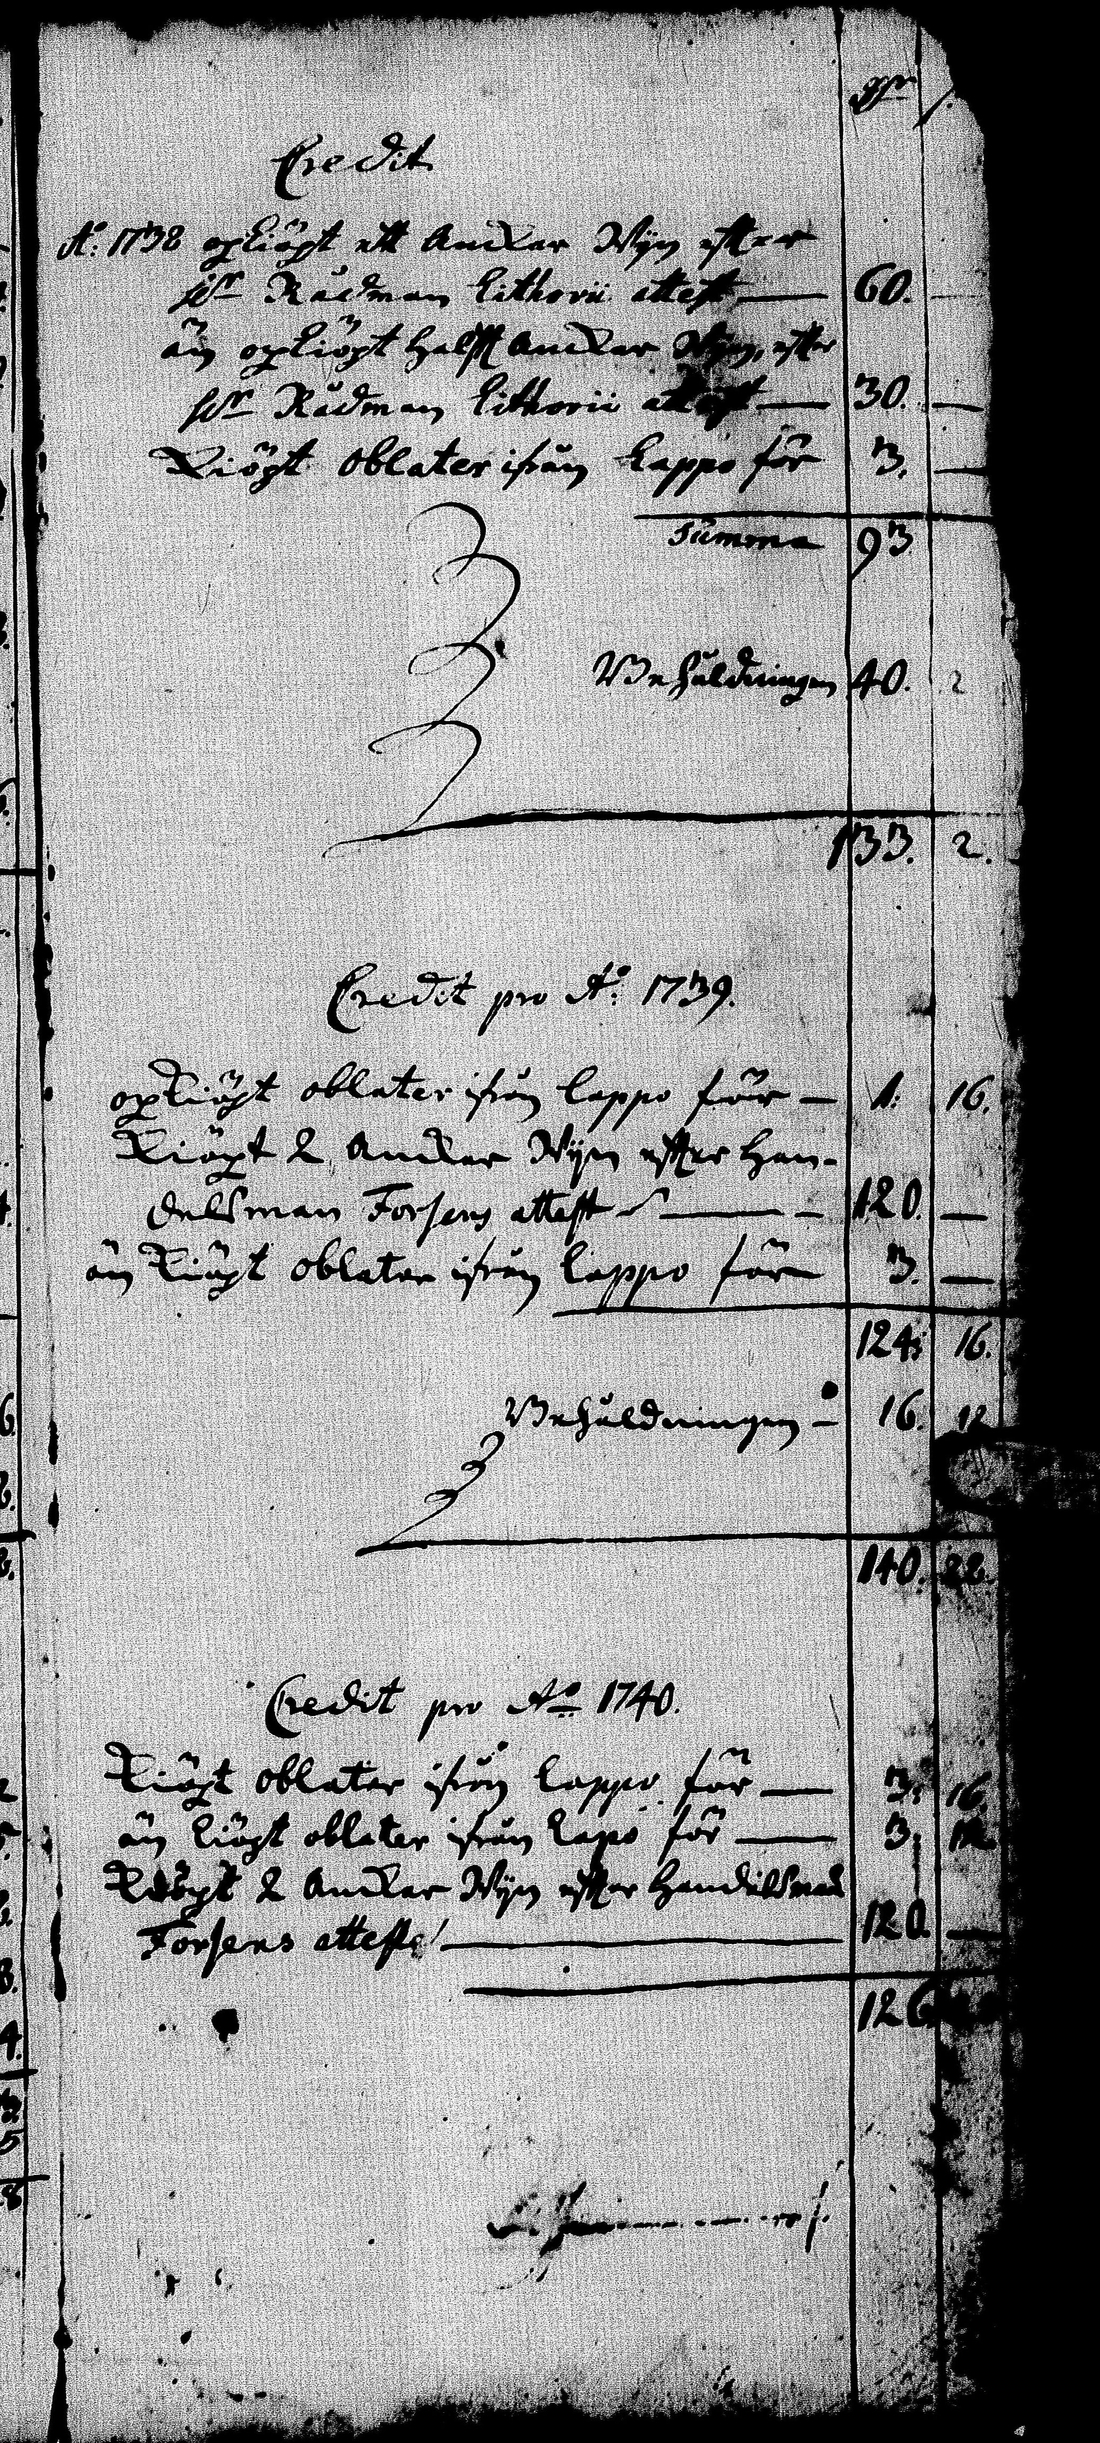 Credit
Ao: 1738 opkiöpt ett Ancker Wijn effter
hr Rådman Lithovii attest — 60. —
än opkiöpt halfft Ancker Wijn, effter
hr Rådman Lithovii attest — 30. —
Kiöpt oblater ifrån Lappo för 3. —
Summa 93
Behåldningen 40. 2
133. 2.
Credit pro Ao: 1739.
opkiöpt oblater ifrån Lappo för — 1: 16.
Kiöpt 2 Ancker Wijn effter Han-
delsman Forsens attest — 120. —
än Kiöpt oblater ifrån Lappo för 3. —
124: 16.
Behåldningen — 16. 12
140. 22.
Credit pro Ao 1740.
Kiöpt oblater ifrån Lappo för — 3: 16.
än kiöpt oblater ifrån Lapo för — 3:
Kiöpt 2 Ancker Wijn effter Handelsman
Forsens attest — 120. —
126